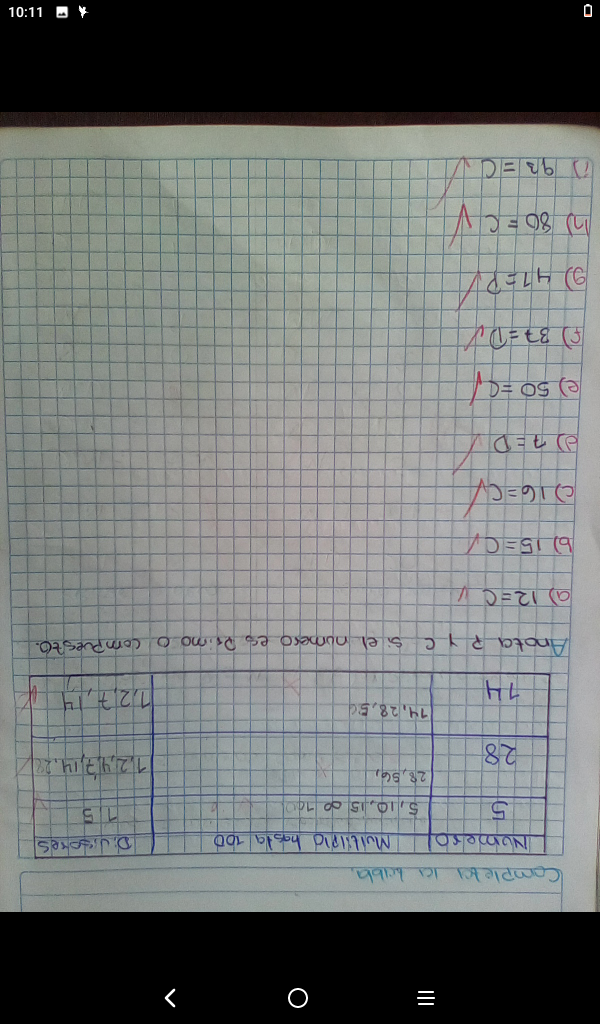 10:11
Completa la tabla.
Numero Multiplo hasta 100 Divisores
5 5,10,15 1,5
28 28,56, 1,2,4,7,14,28
14 14,28,56 1,2,7,14
Anota P y C si el numero es Primo o compuesto.
a) 12=C
b) 15=C
c) 16=C
d) 7=P
e) 50=C
f) 37=P
g) 41=P
h) 80=C
i) 93=C